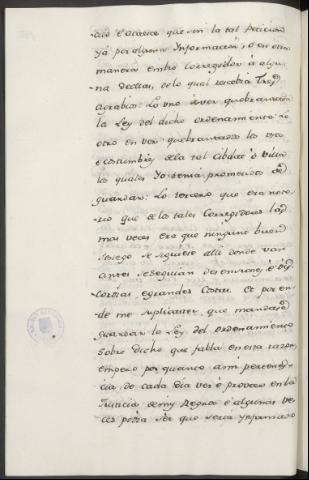 cio é acaece que sin la tal Peticion
yá por alguna Informacion, ó en otra
manera entro Corregidor á algu-
na de ellas, de lo qual rescibia
agrabio: Lo uno à ver quebrantada
la Ley del dicho ordenamiento: Lo
otro en ver quebrantados los usos
é costumbres de la tal cibdad ó villa
los quales Yo tenia prometidos de
guardar: Lo tercero que era noto-
rio que de los tales Corregidores las
mas veces era que ningunt buen
sosiego se siguiese allí donde van
antes se seguian disensiones, é dis-
cordias, e grandes Costas. Et por en-
de me suplicastes, que mandase
guardar la Ley del ordenamiento
sobre dicho que fabla en esta razon,
empero por quanto à mi pertenes-
cia, de cada dia ver é proveer en la
Justicia de my Regnos é algunas ve-
ces podia ser que seria ynformado